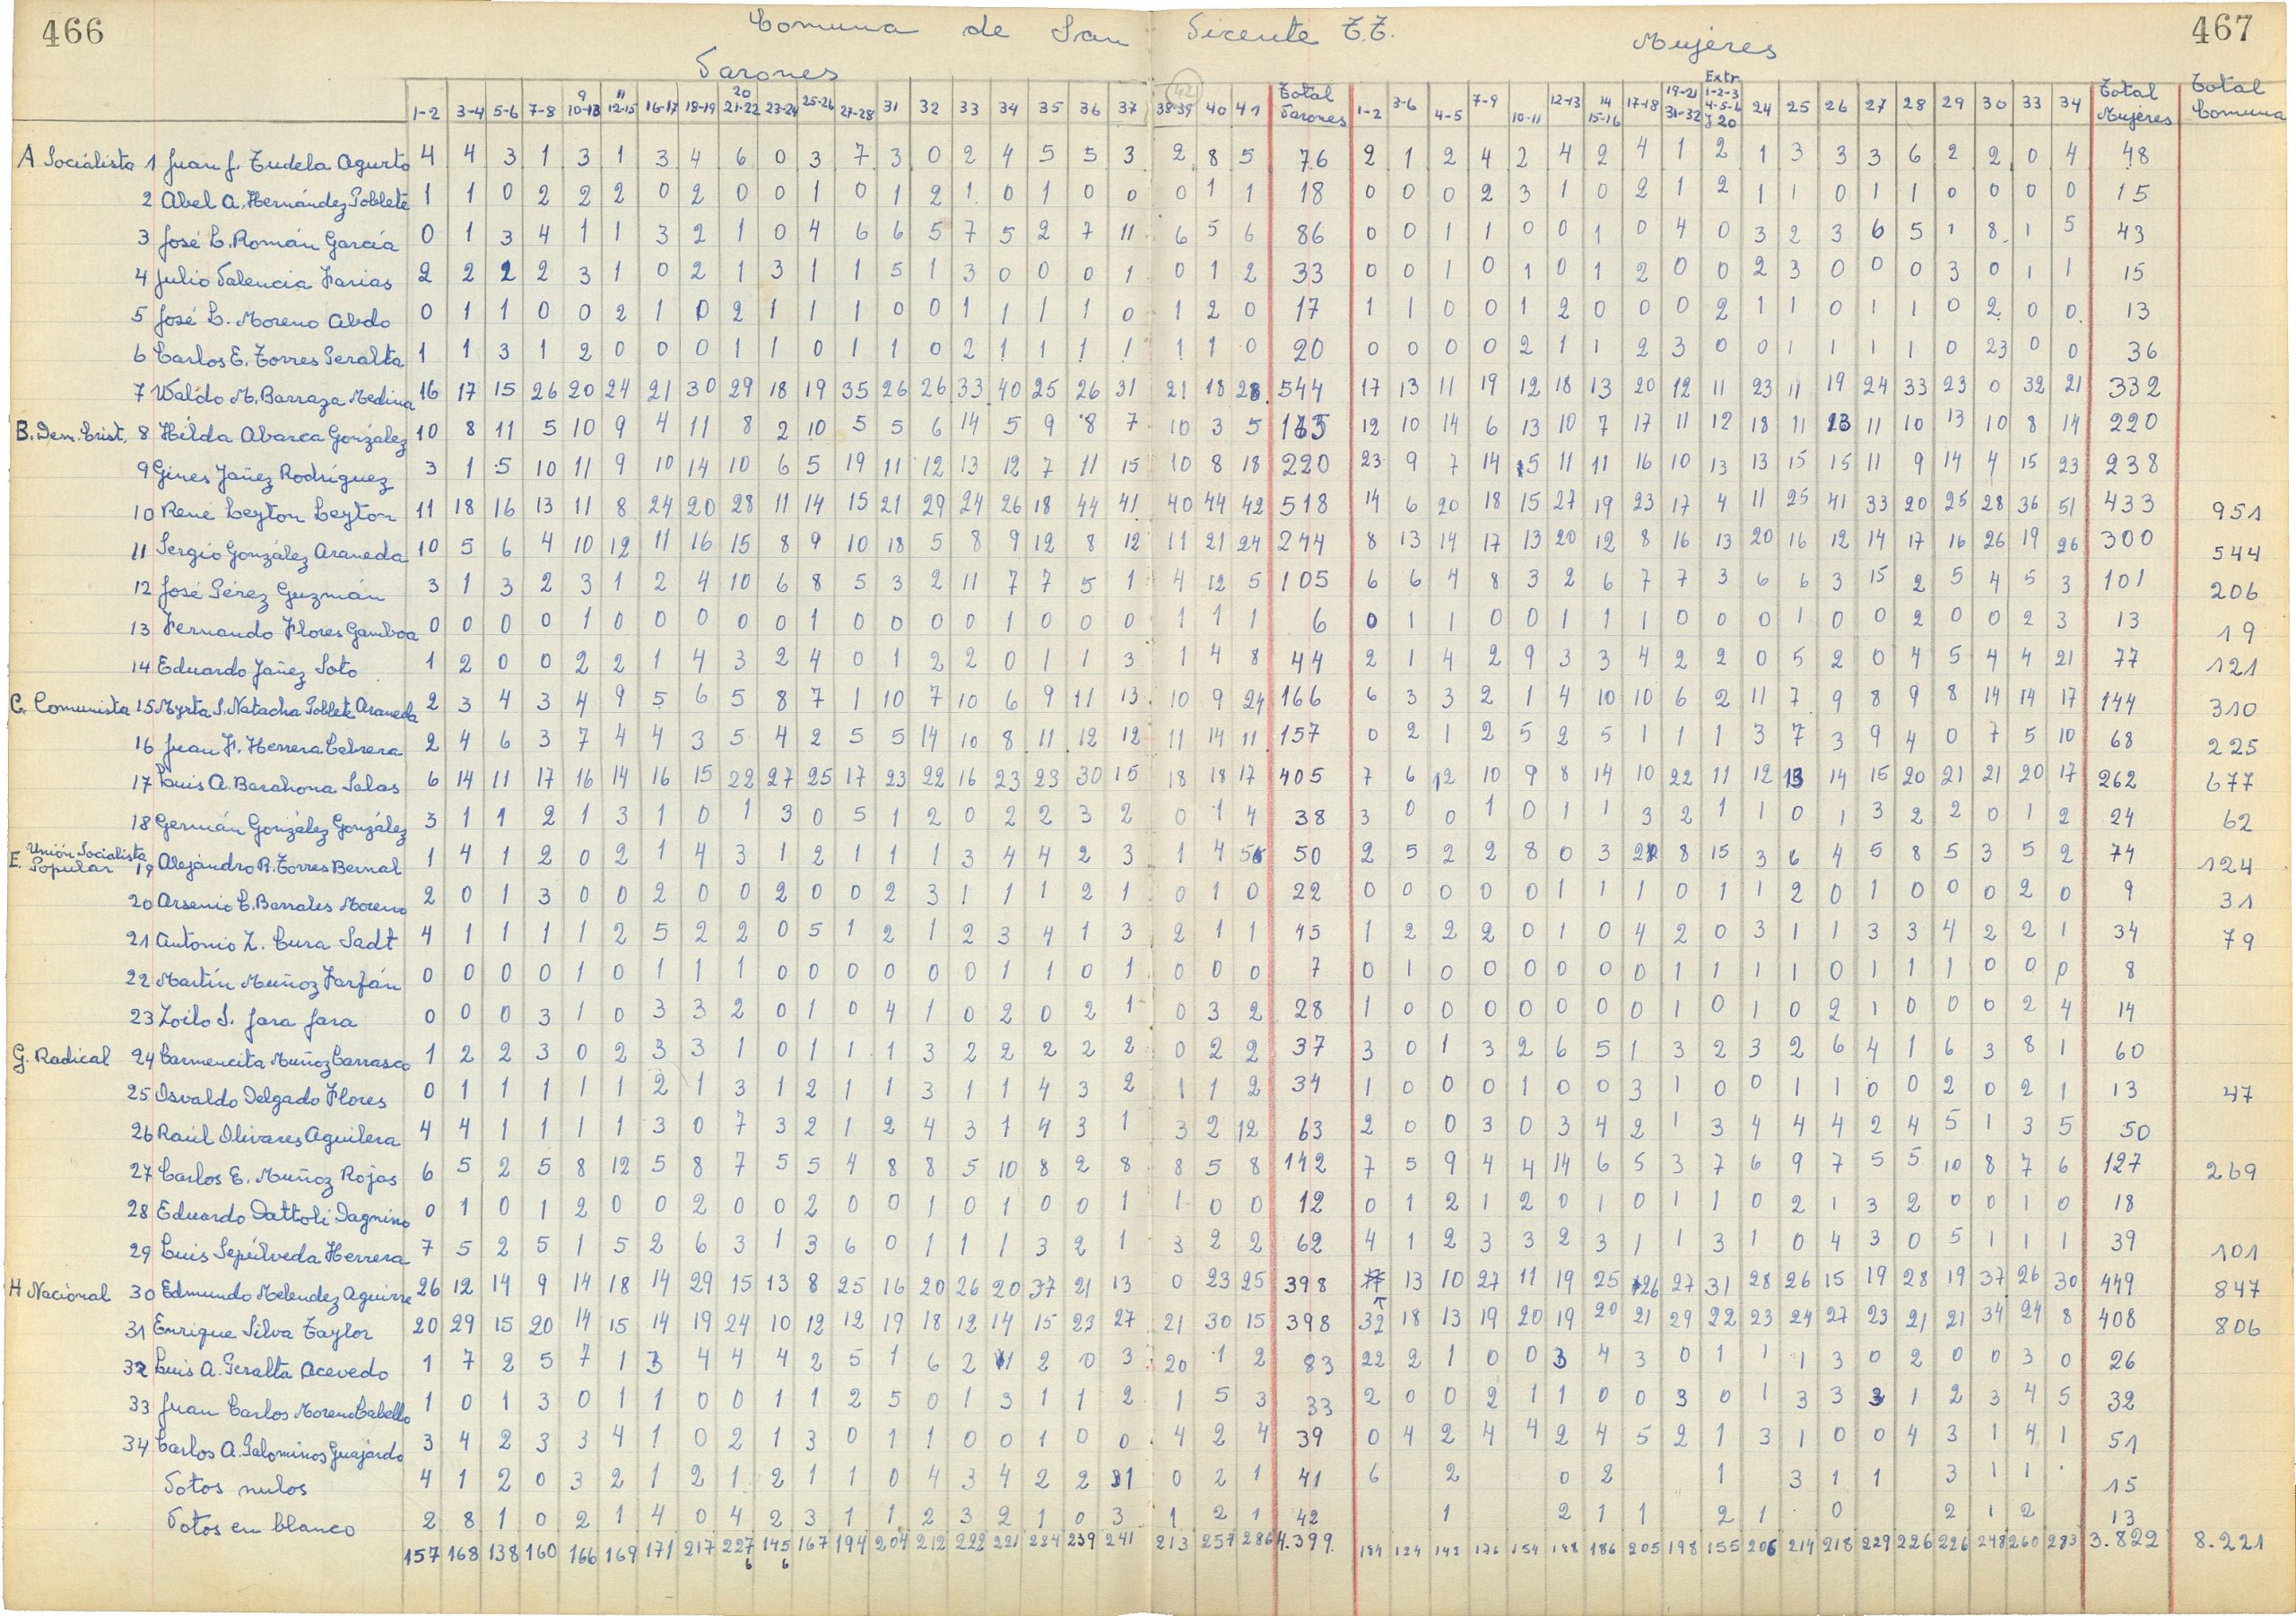 466
Comuna de San Vicente T.T.
467
Varones
Mujeres
1-2 3-4 5-6 7-8 9 10-13 11 12-15 16-17 18-19 20 21-22 23-24 25-26 27-28 31 32 33 34 35 36 37 38-39 (42) 40 41 Total Varones 1-2 3-6 4-5 7-9 10-11 12-13 14 15-16 17-18 19-21 31-32 Extr. 1-2-3 4-5-6 y 20 24 25 26 27 28 29 30 33 34 Total Mujeres Total Comuna
A Socialista 1 Juan J. Tudela Agurto 4 4 3 1 3 1 3 4 6 0 3 7 3 0 2 4 5 5 3 2 8 5 76 2 1 2 4 2 4 2 4 1 2 1 3 3 3 6 2 2 0 4 48
2 Abel A. Hernández Poblete 1 1 0 2 2 2 0 2 0 0 1 0 1 2 1 0 1 0 0 0 1 1 18 0 0 0 2 3 1 0 2 1 2 1 1 0 1 1 0 0 0 0 15
3 José L. Román García 0 1 3 4 1 1 3 2 1 0 4 6 6 5 7 5 2 7 11 6 5 6 86 0 0 1 1 0 0 1 0 4 0 3 2 3 6 5 1 8 1 5 43
4 Julio Valencia Farias 2 2 2 2 3 1 0 2 1 3 1 1 5 1 3 0 0 0 1 0 1 2 33 0 0 1 0 1 0 1 2 0 0 2 3 0 0 0 3 0 1 1 15
5 José L. Moreno Abdo 0 1 1 0 0 2 1 0 2 1 1 1 0 0 1 1 1 1 0 1 2 0 17 1 1 0 0 1 2 0 0 0 2 1 1 0 1 1 0 2 0 0 13
6 Carlos E. Torres Peralta 1 1 3 1 2 0 0 0 1 1 0 1 1 0 2 1 1 1 1 1 1 0 20 0 0 0 0 2 1 1 2 3 0 0 1 1 1 1 0 23 0 0 36
7 Waldo M. Barraza Medina 16 17 15 26 20 24 21 30 29 18 19 35 26 26 33 40 25 26 31 21 18 28 544 17 13 11 19 12 18 13 20 12 11 23 11 19 24 33 23 0 32 21 332
B. Dem. Crist. 8 Hilda Abarca González 10 8 11 5 10 9 4 11 8 2 10 5 5 6 14 5 9 8 7 10 3 5 165 12 10 14 6 13 10 7 17 11 12 18 11 23 11 10 13 10 8 14 220
9 Gines Jañez Rodríguez 3 1 5 10 11 9 10 14 10 6 5 19 11 12 13 12 7 11 15 10 8 18 220 23 9 7 14 5 11 11 16 10 13 13 15 15 11 9 14 4 15 23 238
10 René Leyton Leyton 11 18 16 13 11 8 24 20 28 11 14 15 21 29 24 26 18 44 41 40 44 42 518 14 6 20 18 15 27 19 23 17 4 11 25 41 33 20 25 28 36 51 433 951
11 Sergio González Araneda 10 5 6 4 10 12 11 16 15 8 9 10 18 5 8 9 12 8 12 11 21 24 244 8 13 14 17 13 20 12 8 16 13 20 16 12 14 17 16 26 19 26 300 544
12 José Pérez Guzmán 3 1 3 2 3 1 2 4 10 6 8 5 3 2 11 7 7 5 1 4 12 5 105 6 6 4 8 3 2 6 7 7 3 6 6 3 15 2 5 4 5 3 101 206
13 Fernando Flores Gamboa 0 0 0 0 1 0 0 0 0 0 1 0 0 0 0 1 0 0 0 1 1 1 6 0 1 1 0 0 1 1 1 0 0 0 1 0 0 2 0 0 2 3 13 19
14 Eduardo Jañez Soto 1 2 0 0 2 2 1 4 3 2 4 0 1 2 2 0 1 1 3 1 4 8 44 2 1 4 2 9 3 3 4 2 2 0 5 2 0 4 5 4 4 21 77 121
C. Comunista 15 Myrta S. Natacha Poblete Araneda 2 3 4 3 4 9 5 6 5 8 7 1 10 7 10 6 9 11 13 10 9 24 166 6 3 3 2 1 4 10 10 6 2 11 7 9 8 9 8 14 14 17 144 310
16 Juan F. Herrera Cabrera 2 4 6 3 7 4 4 3 5 4 2 5 5 14 10 8 11 12 12 11 14 11 157 0 2 1 2 5 2 5 1 1 1 3 7 3 9 4 0 7 5 10 68 225
17 Luis A. Barahona Salas 6 14 11 17 16 14 16 15 22 27 25 17 23 22 16 23 23 30 15 18 18 17 405 7 6 12 10 9 8 14 10 22 11 12 13 14 15 20 21 21 20 17 262 677
18 Germán González González 3 1 1 2 1 3 1 0 1 3 0 5 1 2 0 2 2 3 2 0 1 4 38 3 0 0 1 0 1 1 3 2 1 1 0 1 3 2 2 0 1 2 24 62
E. Unión Socialista Popular 19 Alejandro R. Torres Bernal 1 4 1 2 0 2 1 4 3 1 2 1 1 1 3 4 4 2 3 1 4 5 50 2 5 2 2 8 0 3 2 8 15 3 6 4 5 8 5 3 5 2 74 124
20 Arsenio C. Barrales Moreno 2 0 1 3 0 0 2 0 0 2 0 0 2 3 1 1 1 2 1 0 1 0 22 0 0 0 0 0 1 1 1 0 1 1 2 0 1 0 0 0 2 0 9 31
21 Antonio Z. Cura Sadt 4 1 1 1 1 2 5 2 2 0 5 1 2 1 2 3 4 1 3 2 1 1 45 1 2 2 2 0 1 0 4 2 0 3 1 1 3 3 4 2 2 1 34 79
22 Martín Muñoz Farfán 0 0 0 0 1 0 1 1 1 0 0 0 0 0 0 1 1 0 1 0 0 0 7 0 1 0 0 0 0 0 0 1 1 1 1 0 1 1 1 0 0 0 8
23 Zoilo S. Jara Jara 0 0 0 3 1 0 3 3 2 0 1 0 4 1 0 2 0 2 1 0 3 2 28 1 0 0 0 0 0 0 0 1 0 1 0 2 1 0 0 0 2 4 14
G. Radical 24 Carmencita Muñoz Carrasco 1 2 2 3 0 2 3 3 1 0 1 1 1 3 2 2 2 2 2 0 2 2 37 3 0 1 3 2 6 5 1 3 2 3 2 6 4 1 6 3 8 1 60
25 Osvaldo Delgado Flores 0 1 1 1 1 1 2 1 3 1 2 1 1 3 1 1 4 3 2 1 1 2 34 1 0 0 0 1 0 0 3 1 0 0 1 1 0 0 2 0 2 1 13 47
26 Raúl Olivares Aguilera 4 4 1 1 1 1 3 0 7 3 2 1 2 4 3 1 4 3 1 3 2 12 63 2 0 0 3 0 3 4 2 1 3 4 4 4 2 4 5 1 3 5 50
27 Carlos E. Muñoz Rojas 6 5 2 5 8 12 5 8 7 5 5 4 8 8 5 10 8 2 8 8 5 8 142 7 5 9 4 4 14 6 5 3 7 6 9 7 5 5 10 8 7 6 127 269
28 Eduardo Dattoli Dagnino 0 1 0 1 2 0 0 2 0 0 2 0 0 1 0 1 0 0 1 1 0 0 12 0 1 2 1 2 0 1 0 1 1 0 2 1 3 2 0 0 1 0 18
29 Luis Sepúlveda Herrera 7 5 2 5 1 5 2 6 3 1 3 6 0 1 1 1 3 2 1 3 2 2 62 4 1 2 3 3 2 3 1 1 3 1 0 4 3 0 5 1 1 1 39 101
H Nacional 30 Edmundo Melendez Aguirre 26 12 14 9 14 18 14 29 15 13 8 25 16 20 26 20 37 21 13 0 23 25 398 13 10 27 11 19 25 26 27 31 28 26 15 19 28 19 37 26 30 449 847
31 Enrique Silva Taylor 20 29 15 20 14 15 14 19 24 10 12 12 19 18 12 14 15 23 27 21 30 15 398 32 18 13 19 20 19 20 21 29 22 23 24 27 23 21 21 34 24 8 408 806
32 Luis A. Peralta Acevedo 1 7 2 5 7 1 3 4 4 4 2 5 1 6 2 1 2 0 3 20 1 2 83 22 2 1 0 0 3 4 3 0 1 1 1 3 0 2 0 0 3 0 26
33 Juan Carlos Moreno Cabello 1 0 1 3 0 1 1 0 0 1 1 2 5 0 1 3 1 1 2 1 5 3 33 2 0 0 2 1 1 0 0 3 0 1 3 3 3 1 2 3 4 5 32
34 Carlos A. Palominos Guajardo 3 4 2 3 3 4 1 0 2 1 3 0 1 1 0 0 1 0 0 4 2 4 39 0 4 2 4 4 2 4 5 2 1 3 1 0 0 4 3 1 4 1 51
Votos nulos 4 1 2 0 3 2 1 2 1 2 1 1 0 4 3 4 2 2 31 0 2 1 41 6 2 0 2 1 3 1 1 3 1 1 15
Votos en blanco 2 8 1 0 2 1 4 0 4 2 3 1 1 2 3 2 1 0 3 1 2 1 42 1 2 1 1 2 1 0 2 1 2 13
157 168 138 160 166 169 171 217 227 145 167 194 204 212 222 221 224 239 241 213 257 286 4.399 184 124 142 176 154 188 186 205 198 155 206 214 218 229 226 226 248 260 283 3.822 8.221
6 6